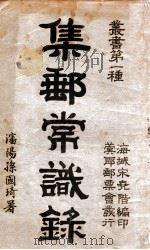 叢書第一種
海城宋堯階編印
冀郵票會發行
集郵常識錄
瀋陽孫國琦署